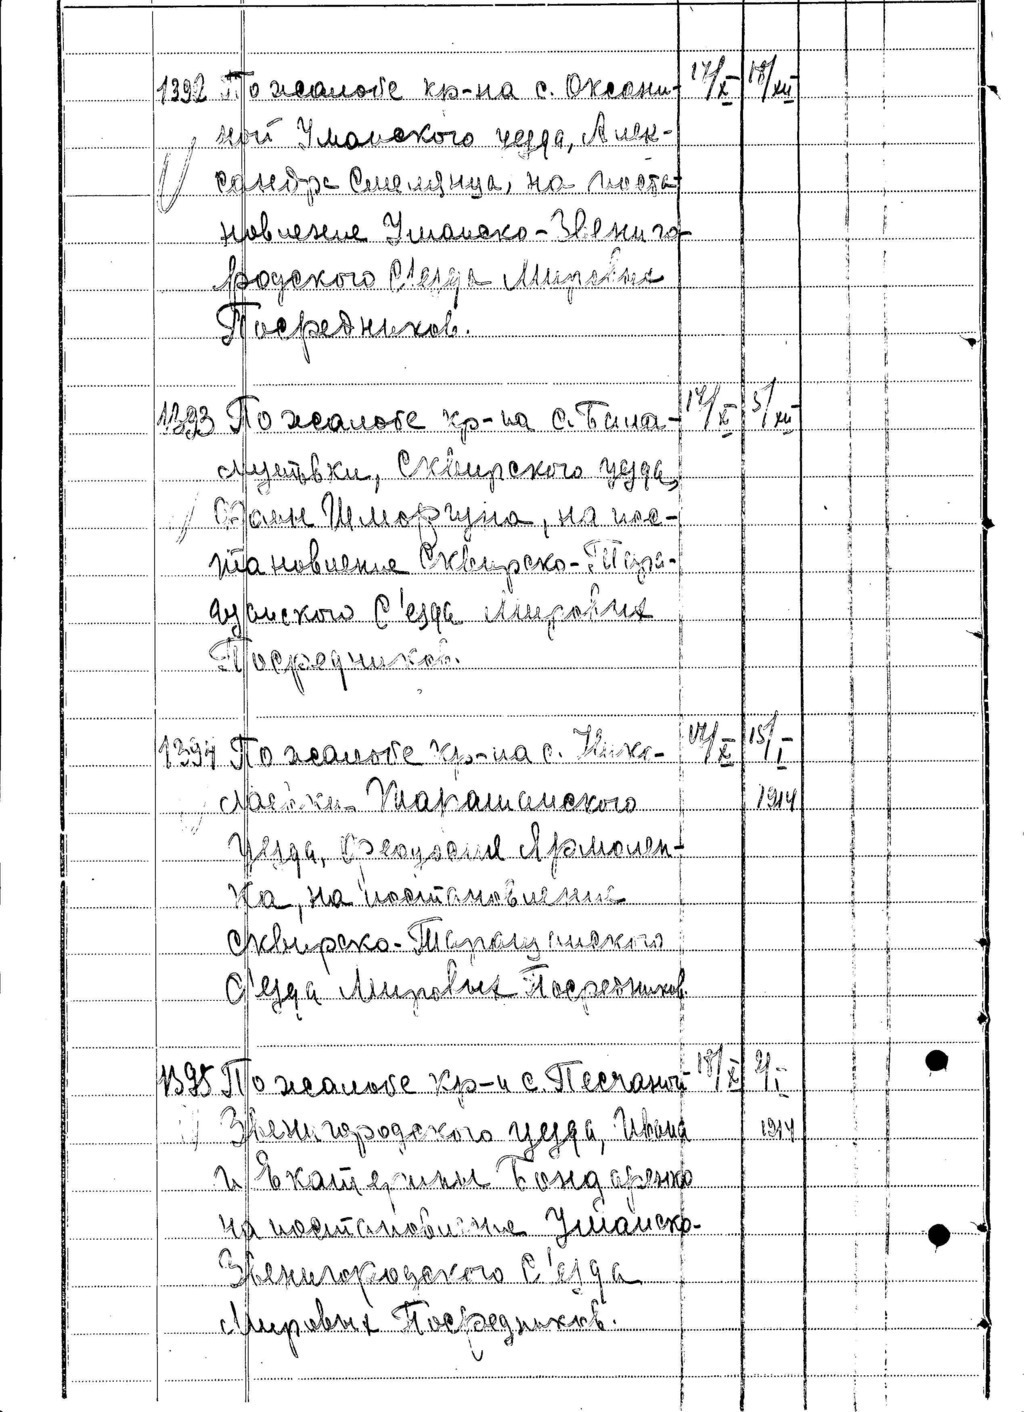 1392 По жалобе кр-на с. Оксани- 17/X 18/XII
ной Уманского уезда, Алек-
сандра Смелянца, на поста-
новление Уманско-Звениго-
родского С'езда Мировых
Посредников.
1393 По жалобе кр-на с. 17/X 5/XII
Сквирского уезда,
Шморгуна, на пос-
тановление Сквирско-Тара-
щанского С'езда Мировых
Посредников.
1394 По жалобе кр-на с. Нико- 17/X 15/I
лаевки Таращанского 1914
уезда, Феодосия Ярмолен-
ка, на постановление
Сквирско-Таращанского
С'езда Мировых Посредников.
1395 По жалобе кр-н с. Песчаной 18/X 21/I
Звенигородского уезда, Ивана 1914
и Екатерины Бондаренко
на постановление Уманско-
Звенигородского С'езда
Мировых Посредников.